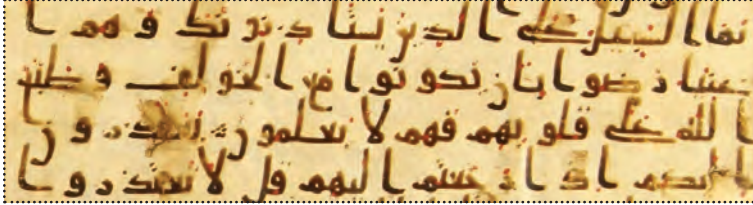 نما السبيل على الذين يستاذنونك وهم ا
غنيا رضوا بان يكونوا مع الخوالف وطبع
الله على قلوبهم فهم لا يعلمون يعتذرون
اليكم اذا رجعتم اليهم قل لا تعتذروا